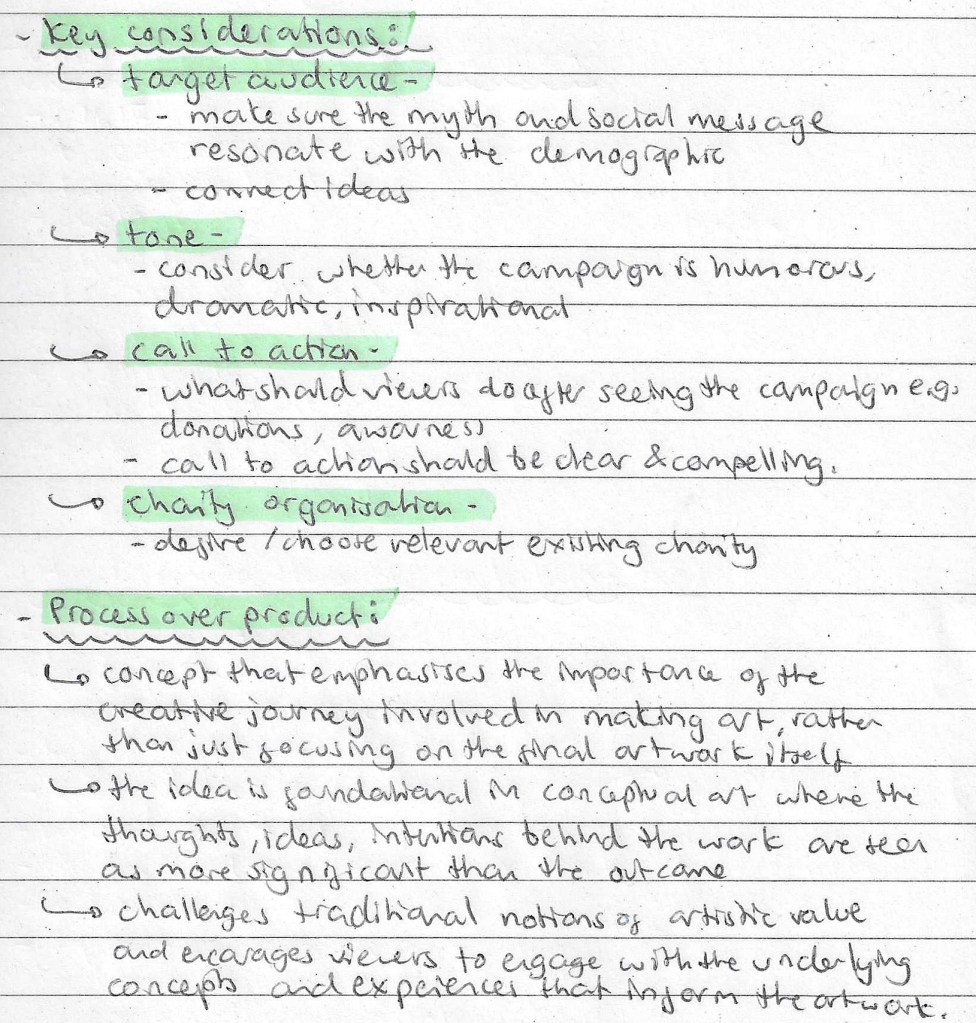 - Key considerations:
↳ target audience -
- make sure the myth and social message
resonate with the demographic
- connect ideas
↳ tone -
- consider whether the campaign is humorous,
dramatic, inspirational
↳ call to action -
- what should viewers do after seeing the campaign e.g.
donations, awarness
- call to action should be clear & compelling.
↳ charity organisation -
- desire / choose relevant existing charity
- Process over product:
↳ concept that emphasises the importance of the
creative journey involved in making art, rather
than just focusing on the final artwork itself
↳ the idea is foundational in conceptual art where the
thoughts, ideas, intentions behind the work are seen
as more significant than the outcome
↳ challenges traditional notions of artistic value
and encourages viewers to engage with the underlying
concepts and experiences that inform the artwork.